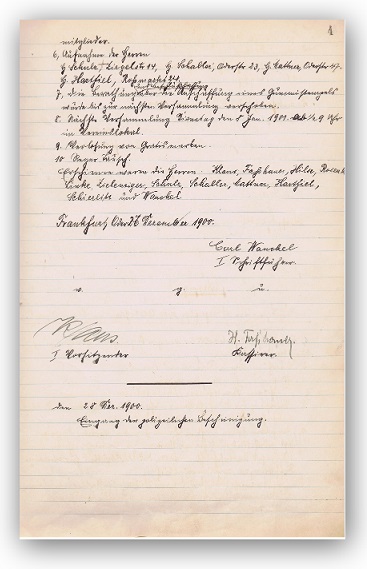 4
mitglieder.
6, Aufnahme der Herren
G Schulz, Ziegelstr 14, G Schaller, Oderstr 23, G. Cattner, Oderstr 47.
G Hartfiel, Roßmarkt 24.
7. die Berathung über die Anschaffung eines Gummistempels
wurde bis zur nächsten Versammlung verschoben.
8. Nächste Versammlung Dienstag den 8 Jan. 1901. Ab. 1/2 9 Uhr
im Vereinslokal.
9. Verlosung von Gratismarken.
10 Reger Tausch.
Erschienen waren die Herren: Klaus, Faßhauer, Hilse,
Linke, Schulz, Schaller, Cattner, Hartfiel,
und Wanckel
Frankfurt, Oder 26 Dezember 1900.
Carl Wanckel
I Schriftführer.
v. g. u.
Klaus.
I Vorsitzender
Kassirer.
den 28 Dez. 1900.
Eingang der polizeilichen Bescheinigung.